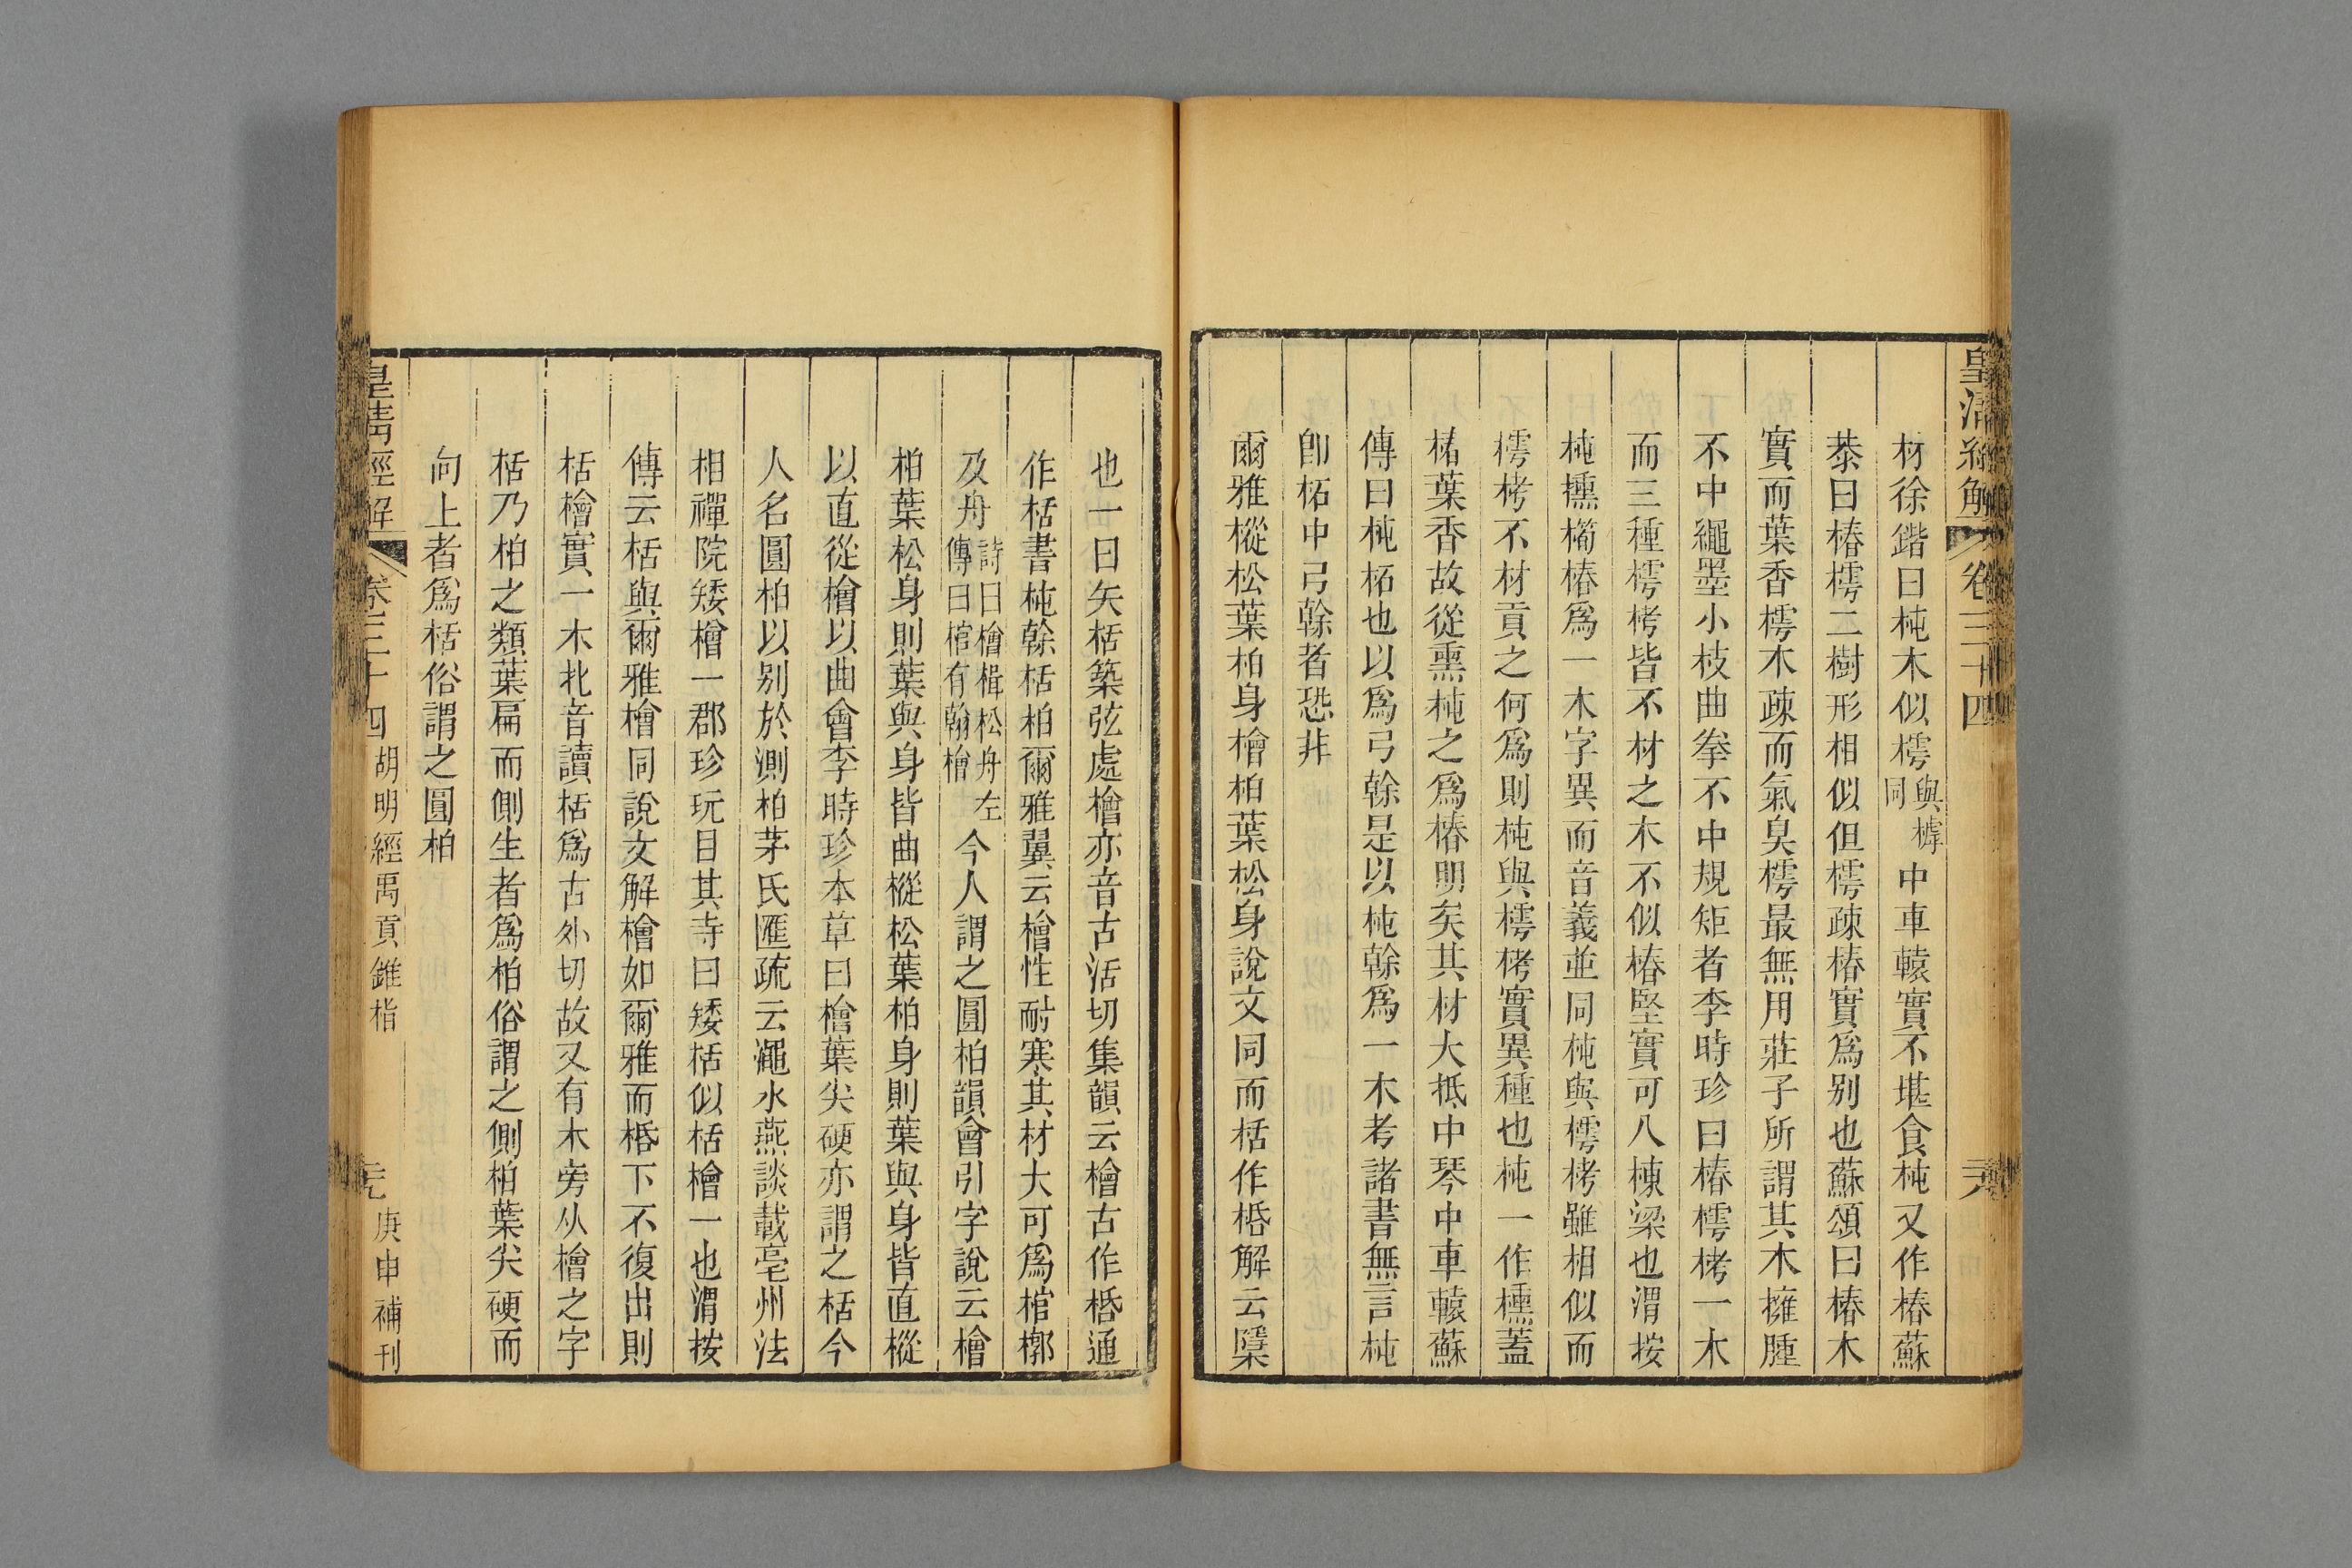 皇清經解 卷三十四
材徐鍇曰杶木似樗與㯉同中車轅實不堪食杶又作椿蘇
恭曰椿樗二樹形相似但樗疎椿實爲别也蘇頌曰椿木
實而葉香樗木疎而氣臭樗最無用莊子所謂其木擁腫
不中繩墨小枝曲拳不中規矩者李時珍曰椿樗栲一木
而三種樗栲皆不材之木不似椿堅實可入棟梁也渭按
杶㯃橁椿爲一木字異而音義並同杶與樗栲雖相似而
樗栲不材貢之何爲則杶與樗栲實異種也杶一作櫄蓋
椿葉香故從熏杶之爲椿明矣其材大抵中琴中車轅蘇
傳曰杶柘也以爲弓榦是以杶榦爲一木考諸書無言杶
卽柘中弓榦者恐非
爾雅樅松葉柏身檜柏葉松身說文同而栝作桰解云檃
也一曰矢栝築弦處檜亦音古活切集韻云檜古作桰通
作栝書杶榦栝柏爾雅翼云檜性耐寒其材大可爲棺槨
及舟詩曰檜楫松舟左傳曰棺有翰檜今人謂之圓柏韻會引字說云檜
柏葉松身則葉與身皆曲樅松葉柏身則葉與身皆直樅
以直從檜以曲會李時珍本草曰檜葉尖硬亦謂之栝今
人名圓柏以别於測柏茅氏匯疏云澠水燕談載亳州法
相禪院矮檜一郡珍玩目其寺曰矮栝似栝檜一也渭按
傳云栝與爾雅檜同說文解檜如爾雅而桰下不復出則
栝檜實一木北音讀栝爲古外切故又有木旁从檜之字
栝乃柏之類葉扁而側生者爲柏俗謂之側柏葉尖硬而
向上者爲栝俗謂之圓柏
皇清經解 卷三十四 胡明經禹貢錐指 庚申補刊